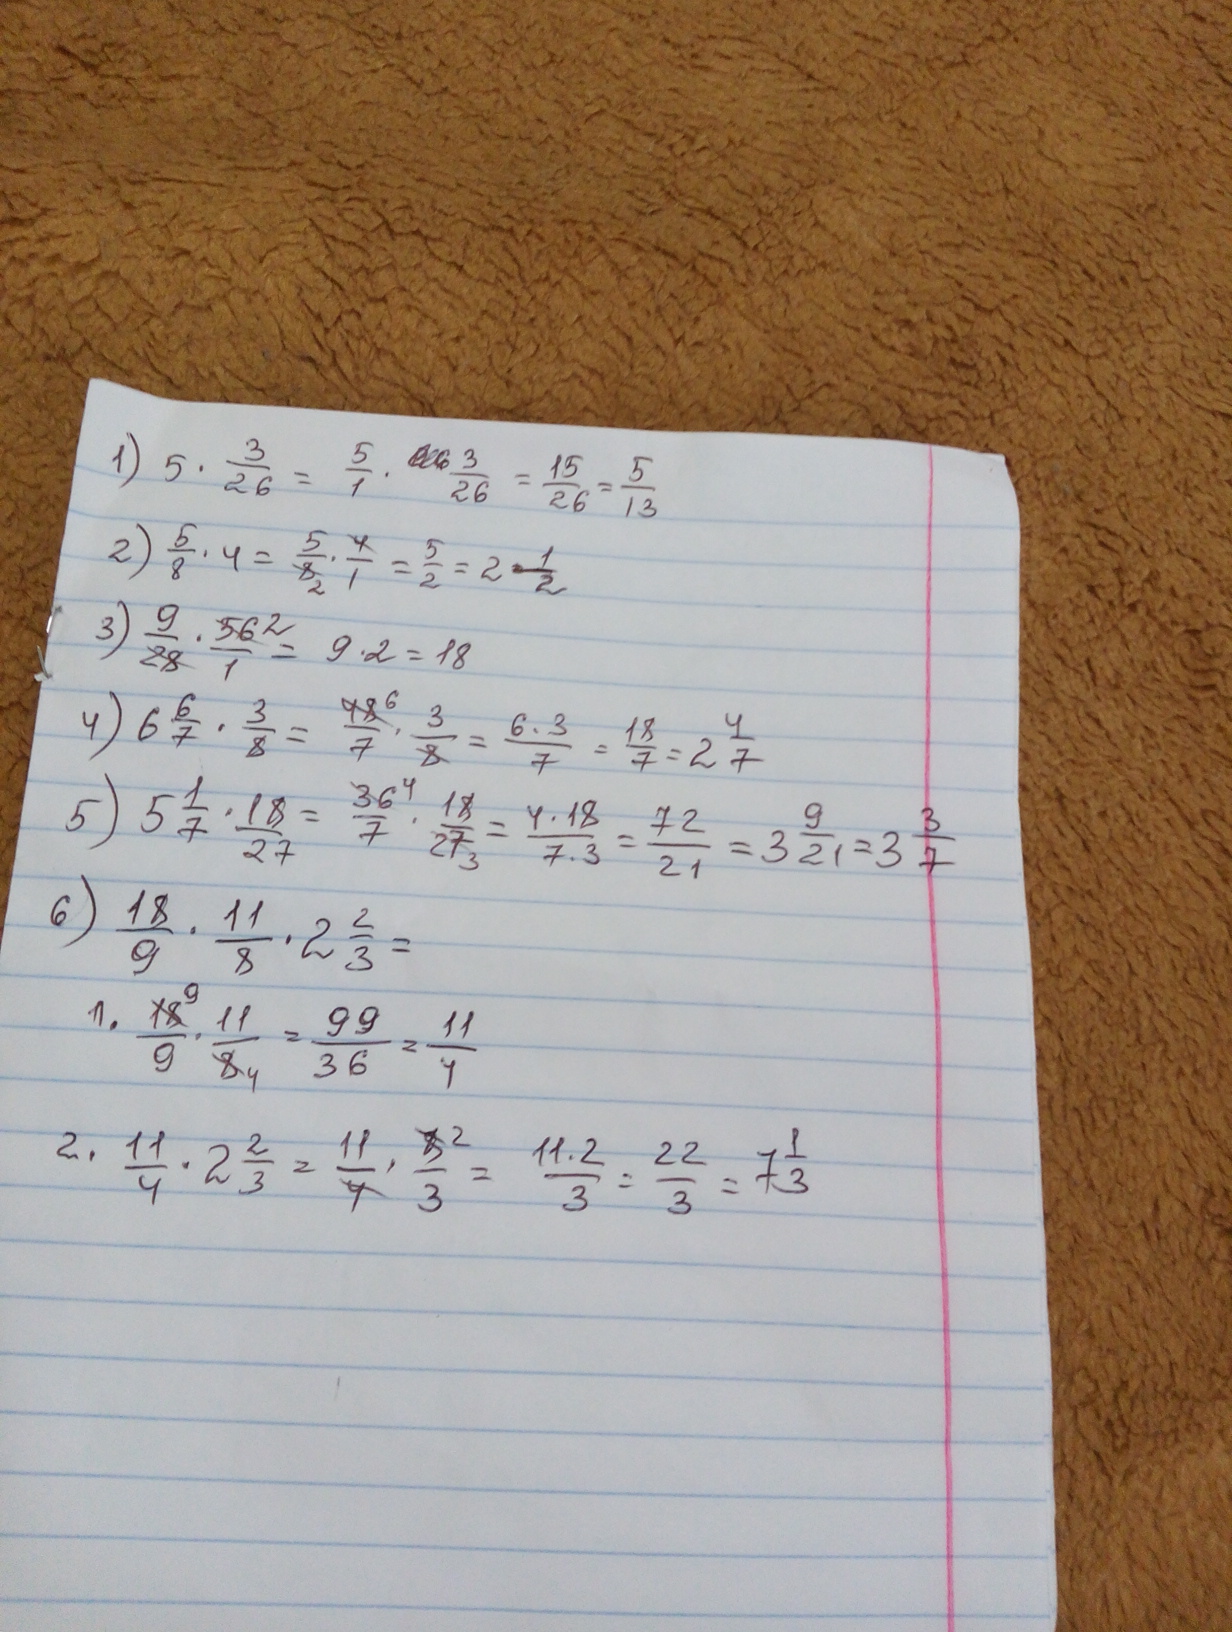 1) 5 · 3/26 = 5/1 · 3/26 = 15/26 = 5/13
2) 5/8 · 4 = 5/8 2 · 4/1 = 5/2 = 2 1/2
3) 9/28 · 56 2/1 = 9 · 2 = 18
4) 6 6/7 · 3/8 = 48 6/7 · 3/8 = 6 · 3/7 = 18/7 = 2 4/7
5) 5 1/7 · 18/27 = 36 4/7 · 18/27 3 = 4 · 18/7 · 3 = 72/21 = 3 9/21 = 3 3/7
6) 18/9 · 11/8 · 2 2/3 =
1. 18 9/9 · 11/8 4 = 99/36 = 11/4
2. 11/4 · 2 2/3 = 11/4 · 8 2/3 = 11 · 2/3 = 22/3 = 7 1/3